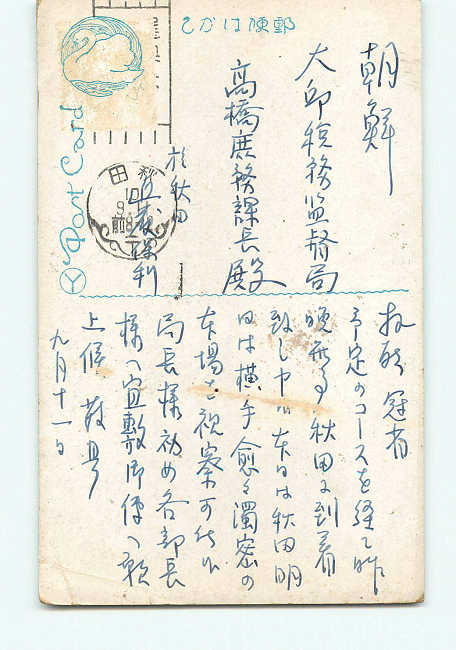 郵便はがき
Post Card
朝鮮
大邱税務監督局
高橋庶務課長殿
於秋田
秋田
10
前8
拝啓 冠省
予定のコースを経て昨
晩無事秋田に到着
致し申候 本日は秋田明
日は横手愈々濁密の
本場を視察可仕候
局長様初め各部長
様へ宜敷御伝へ願
上候 敬具
九月十一日